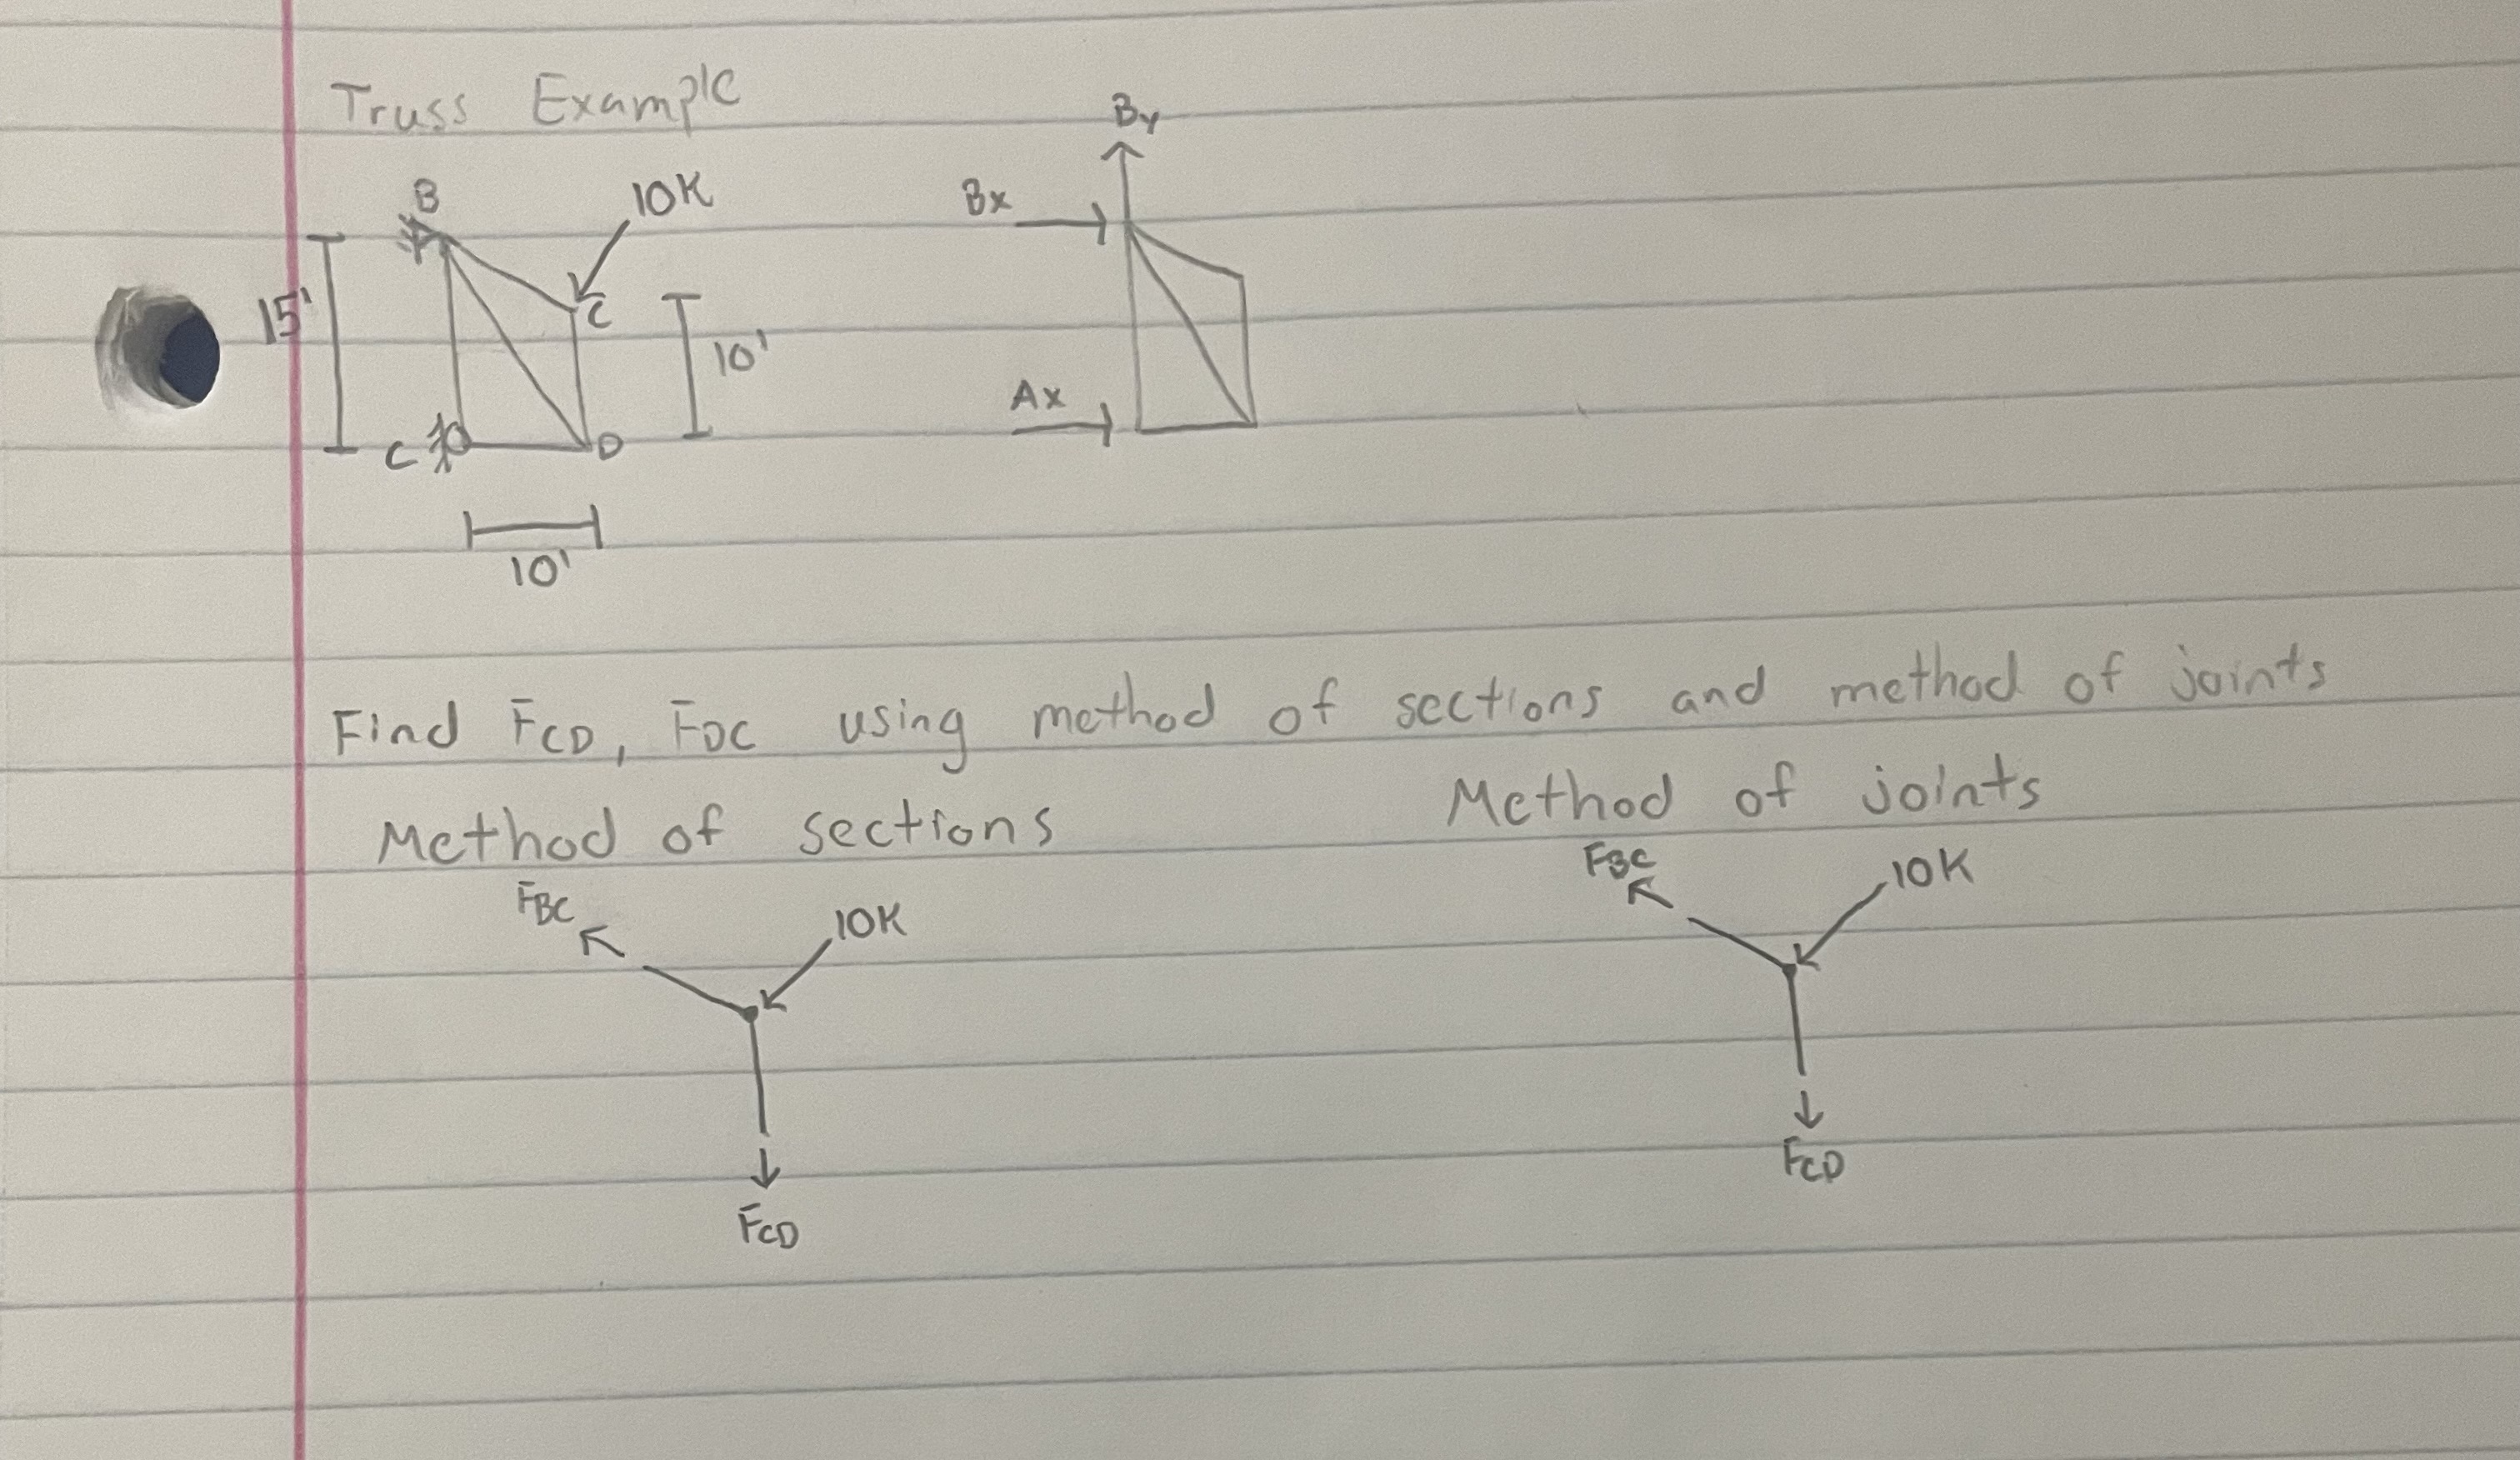 Truss Example
B
10K
15'
C
10'
C
D
10'
By
Bx
Ax
Find FCD, FDC using method of sections and method of joints
Method of sections
FBC
10K
FCD
Method of joints
FBC
10K
FCD